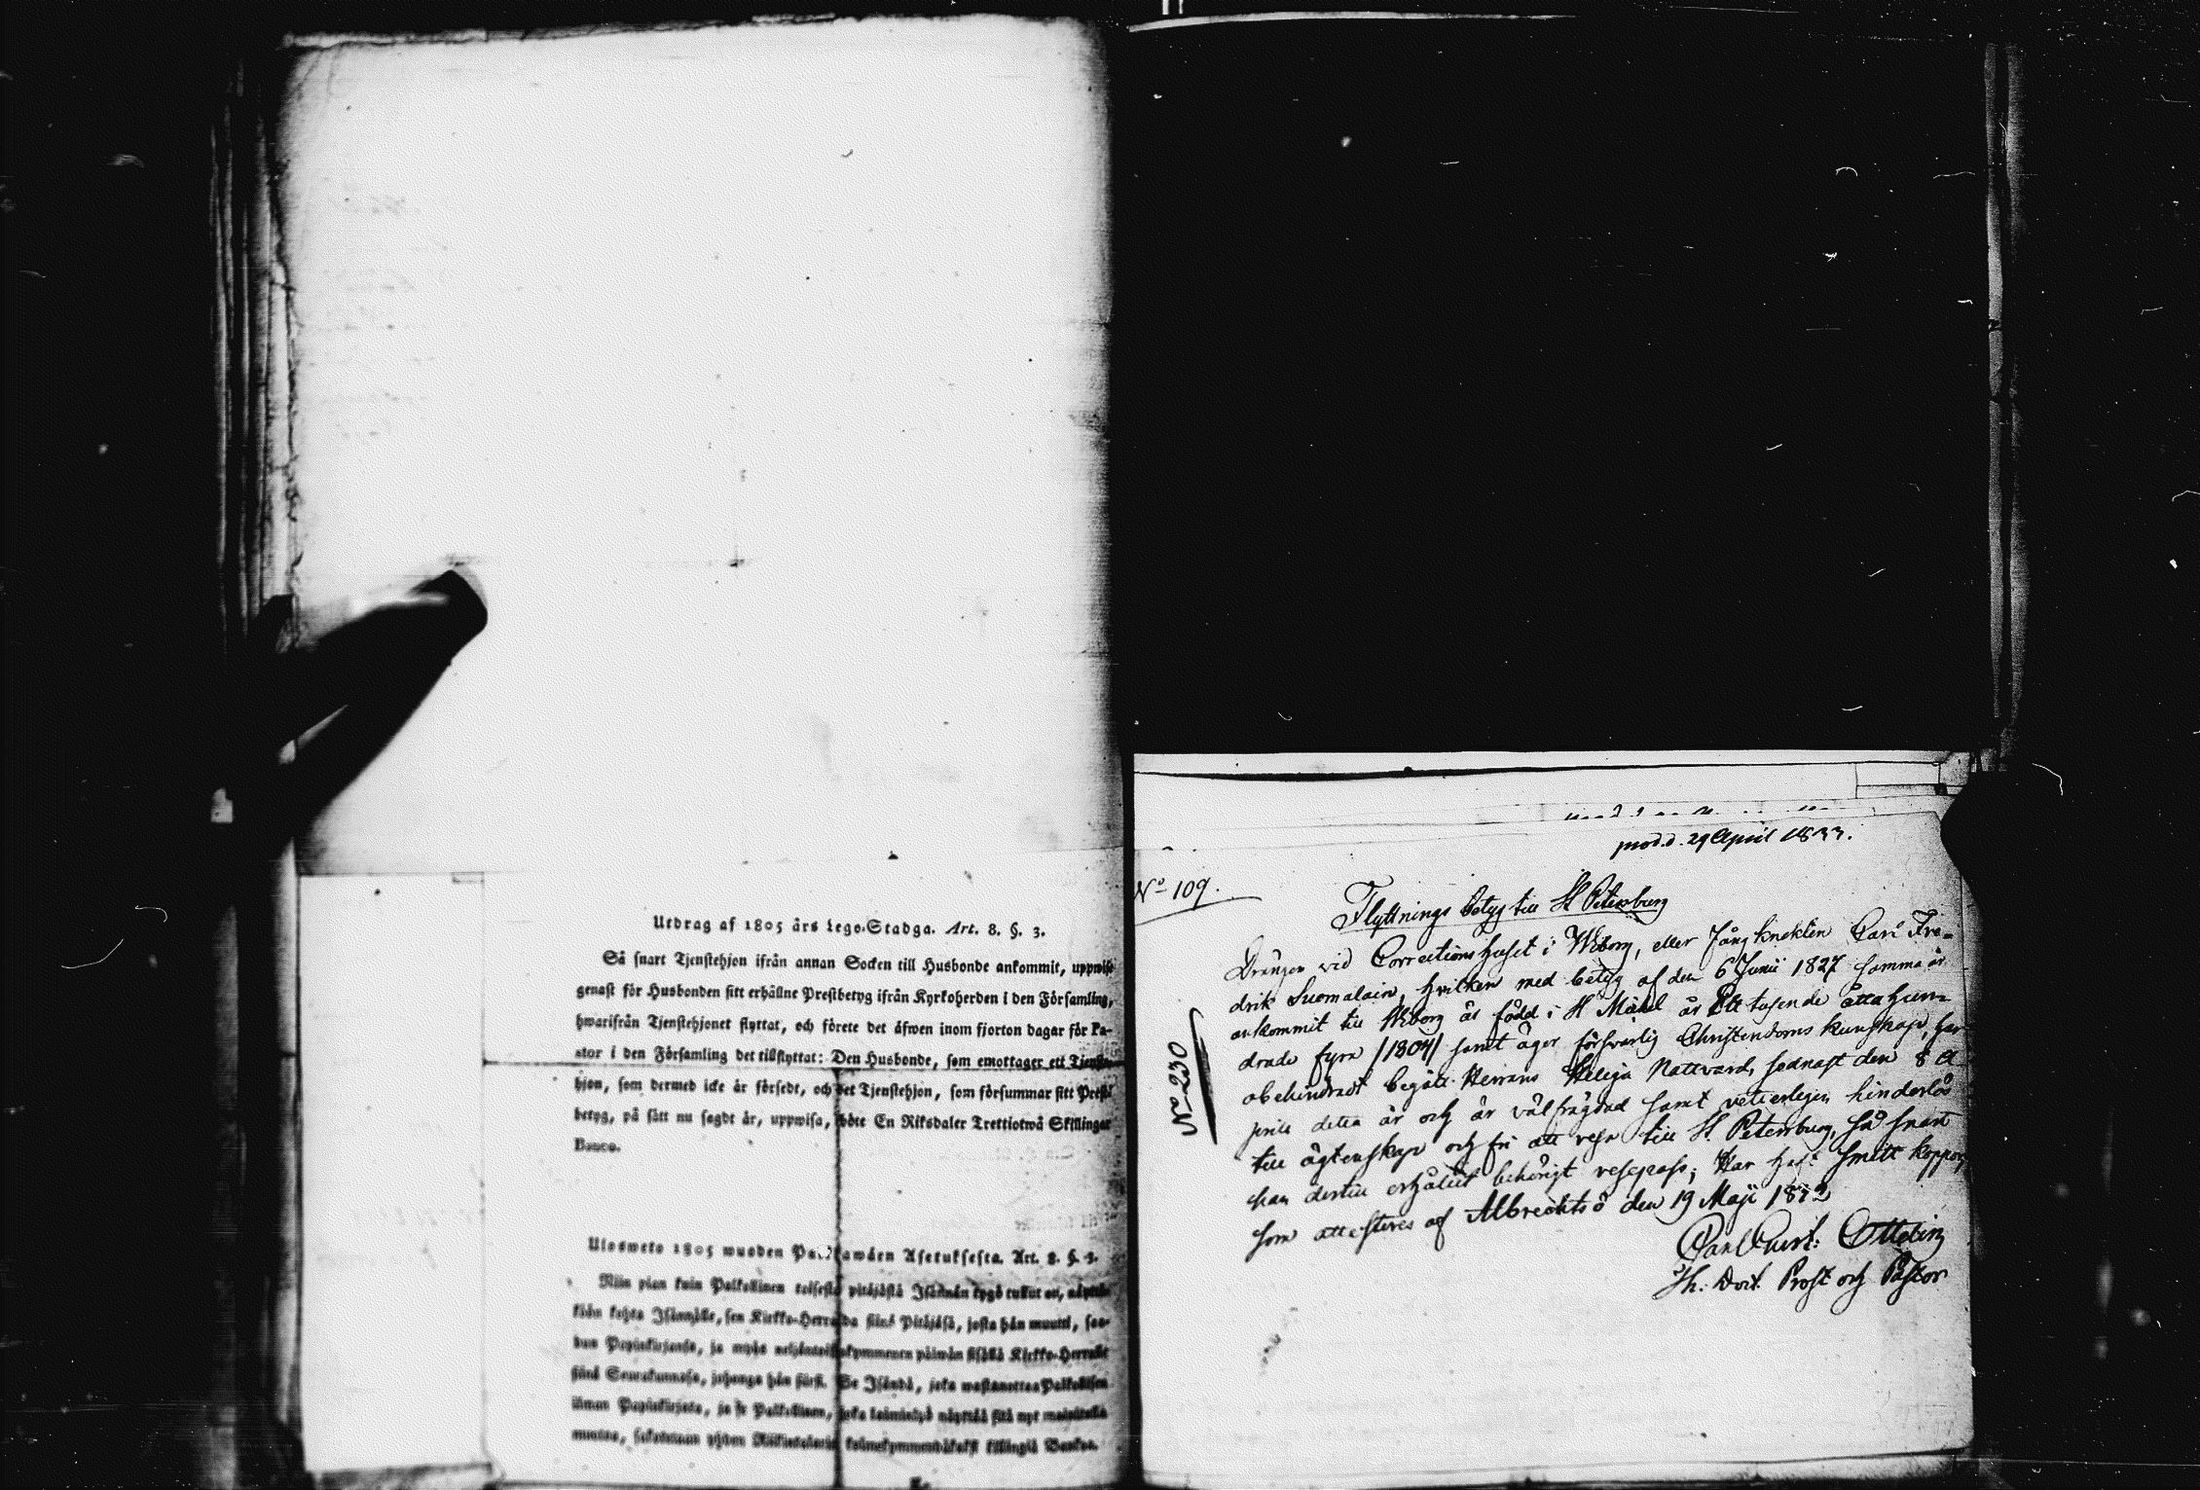 Utdrag af 1805 års Lego-Stadga. Art. 8. §. 3.
Så snart Tjenstehjon ifrån annan Socken till Husbonde ankommit, uppwise
genast för Husbonden sitt erhållne Prestbetyg ifrån Kyrkoherden i den Församling,
hwarifrån Tjenstehjonet flyttat, och förete det äfwen inom fjorton dagar för Pa-
stor i den Församling det tillflyttat: Den Husbonde, som emottager ett Tjenste-
hjon, som dermed icke är försedt, och det Tjenstehjon, som försummar sitt Prest-
betyg, på sätt nu sagdt är, uppwisa, böte En Riksdaler Trettiotwå Skillingar
Banco.
Ulosweto 1805 wuoden Palkkawäen Asetuksesta. Art. 8. §. 3.
Niin pian kuin Palkollinen toisesta pitäjästä Isännän tygö tullut on,
kohta Isännälle, sen Kirkko-Herralda siinä Pitäjäsä, josta hän muutti, saa-
dun Papinkirjansa, ja myös neljäntoistakymmenen päiwän sisällä Kirkko-Herralle
siinä Seurakunnasa, johonga hän siirsi. Se Isändä, joka wastanottaa Palkollisen
ilman Papinkirjata, ja se Palkollinen, joka laiminlyö näyttää sitä nyt mainitulla
muotoa, sakotetaan yhden Riikintalarin kolmekymmendäkaksi killingiä Bankos.
prod. d. 29 April 1833.
No 109.
Flyttnings betyg till St Petersburg
Drängen vid Corrections huset i Wiborg, eller Jång kneckten Carl Fre-
drik Suomalain, hvilken med betyg af den 6 Junii 1827 samma år
ankommit till Wiborg är född i St Mickel år Ett tusende åtta hun-
drade fyra /1804/ samt äger försvarlig Christendoms kunskap, har
obehindradt begått Herrans Heliga Nattvard, sednast den 8 A-
prill detta år och är välfrägdad samt veterligen hinderlös
till ägtenskap och fri att resa till St. Petersburg, så snart
han dertill erhållit behörigt respass; Har haft smitt koppor,
som attesteres af Albrechtsö den 19 Maji 1832
Ottelin
Th: Doct. Prost och Pastor
No 230